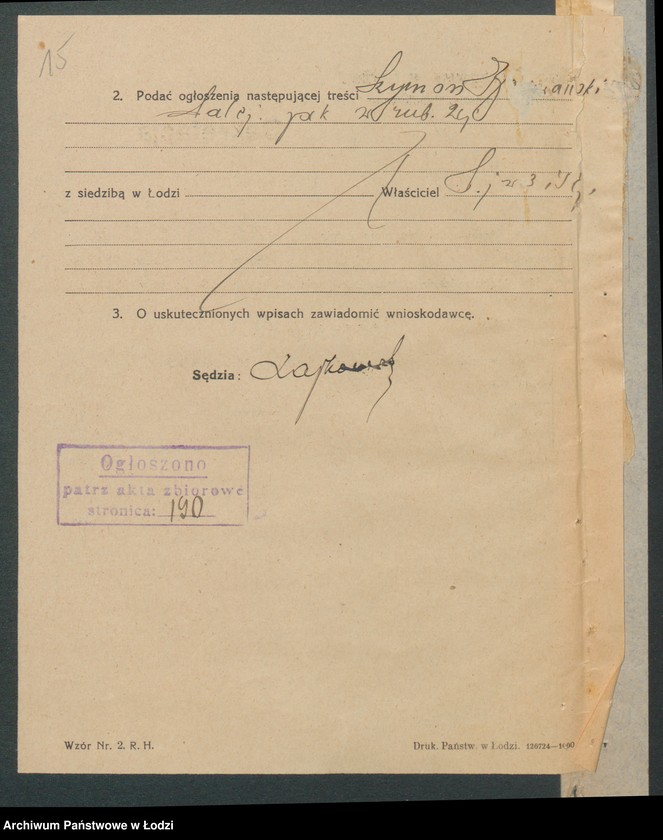 15
2. Podać ogłoszenia następującej treści Szymon
dalej: jak w rub. 2
z siedzibą w Łodzi Właściciel
3. O uskutecznionych wpisach zawiadomić wnioskodawcę.
Sędzia:
Ogłoszono
patrz akta zbiorowe
stronica: 190
Wzór Nr. 2. R. H.
Druk. Państw. w Łodzi. 126724—
Archiwum Państwowe w Łodzi